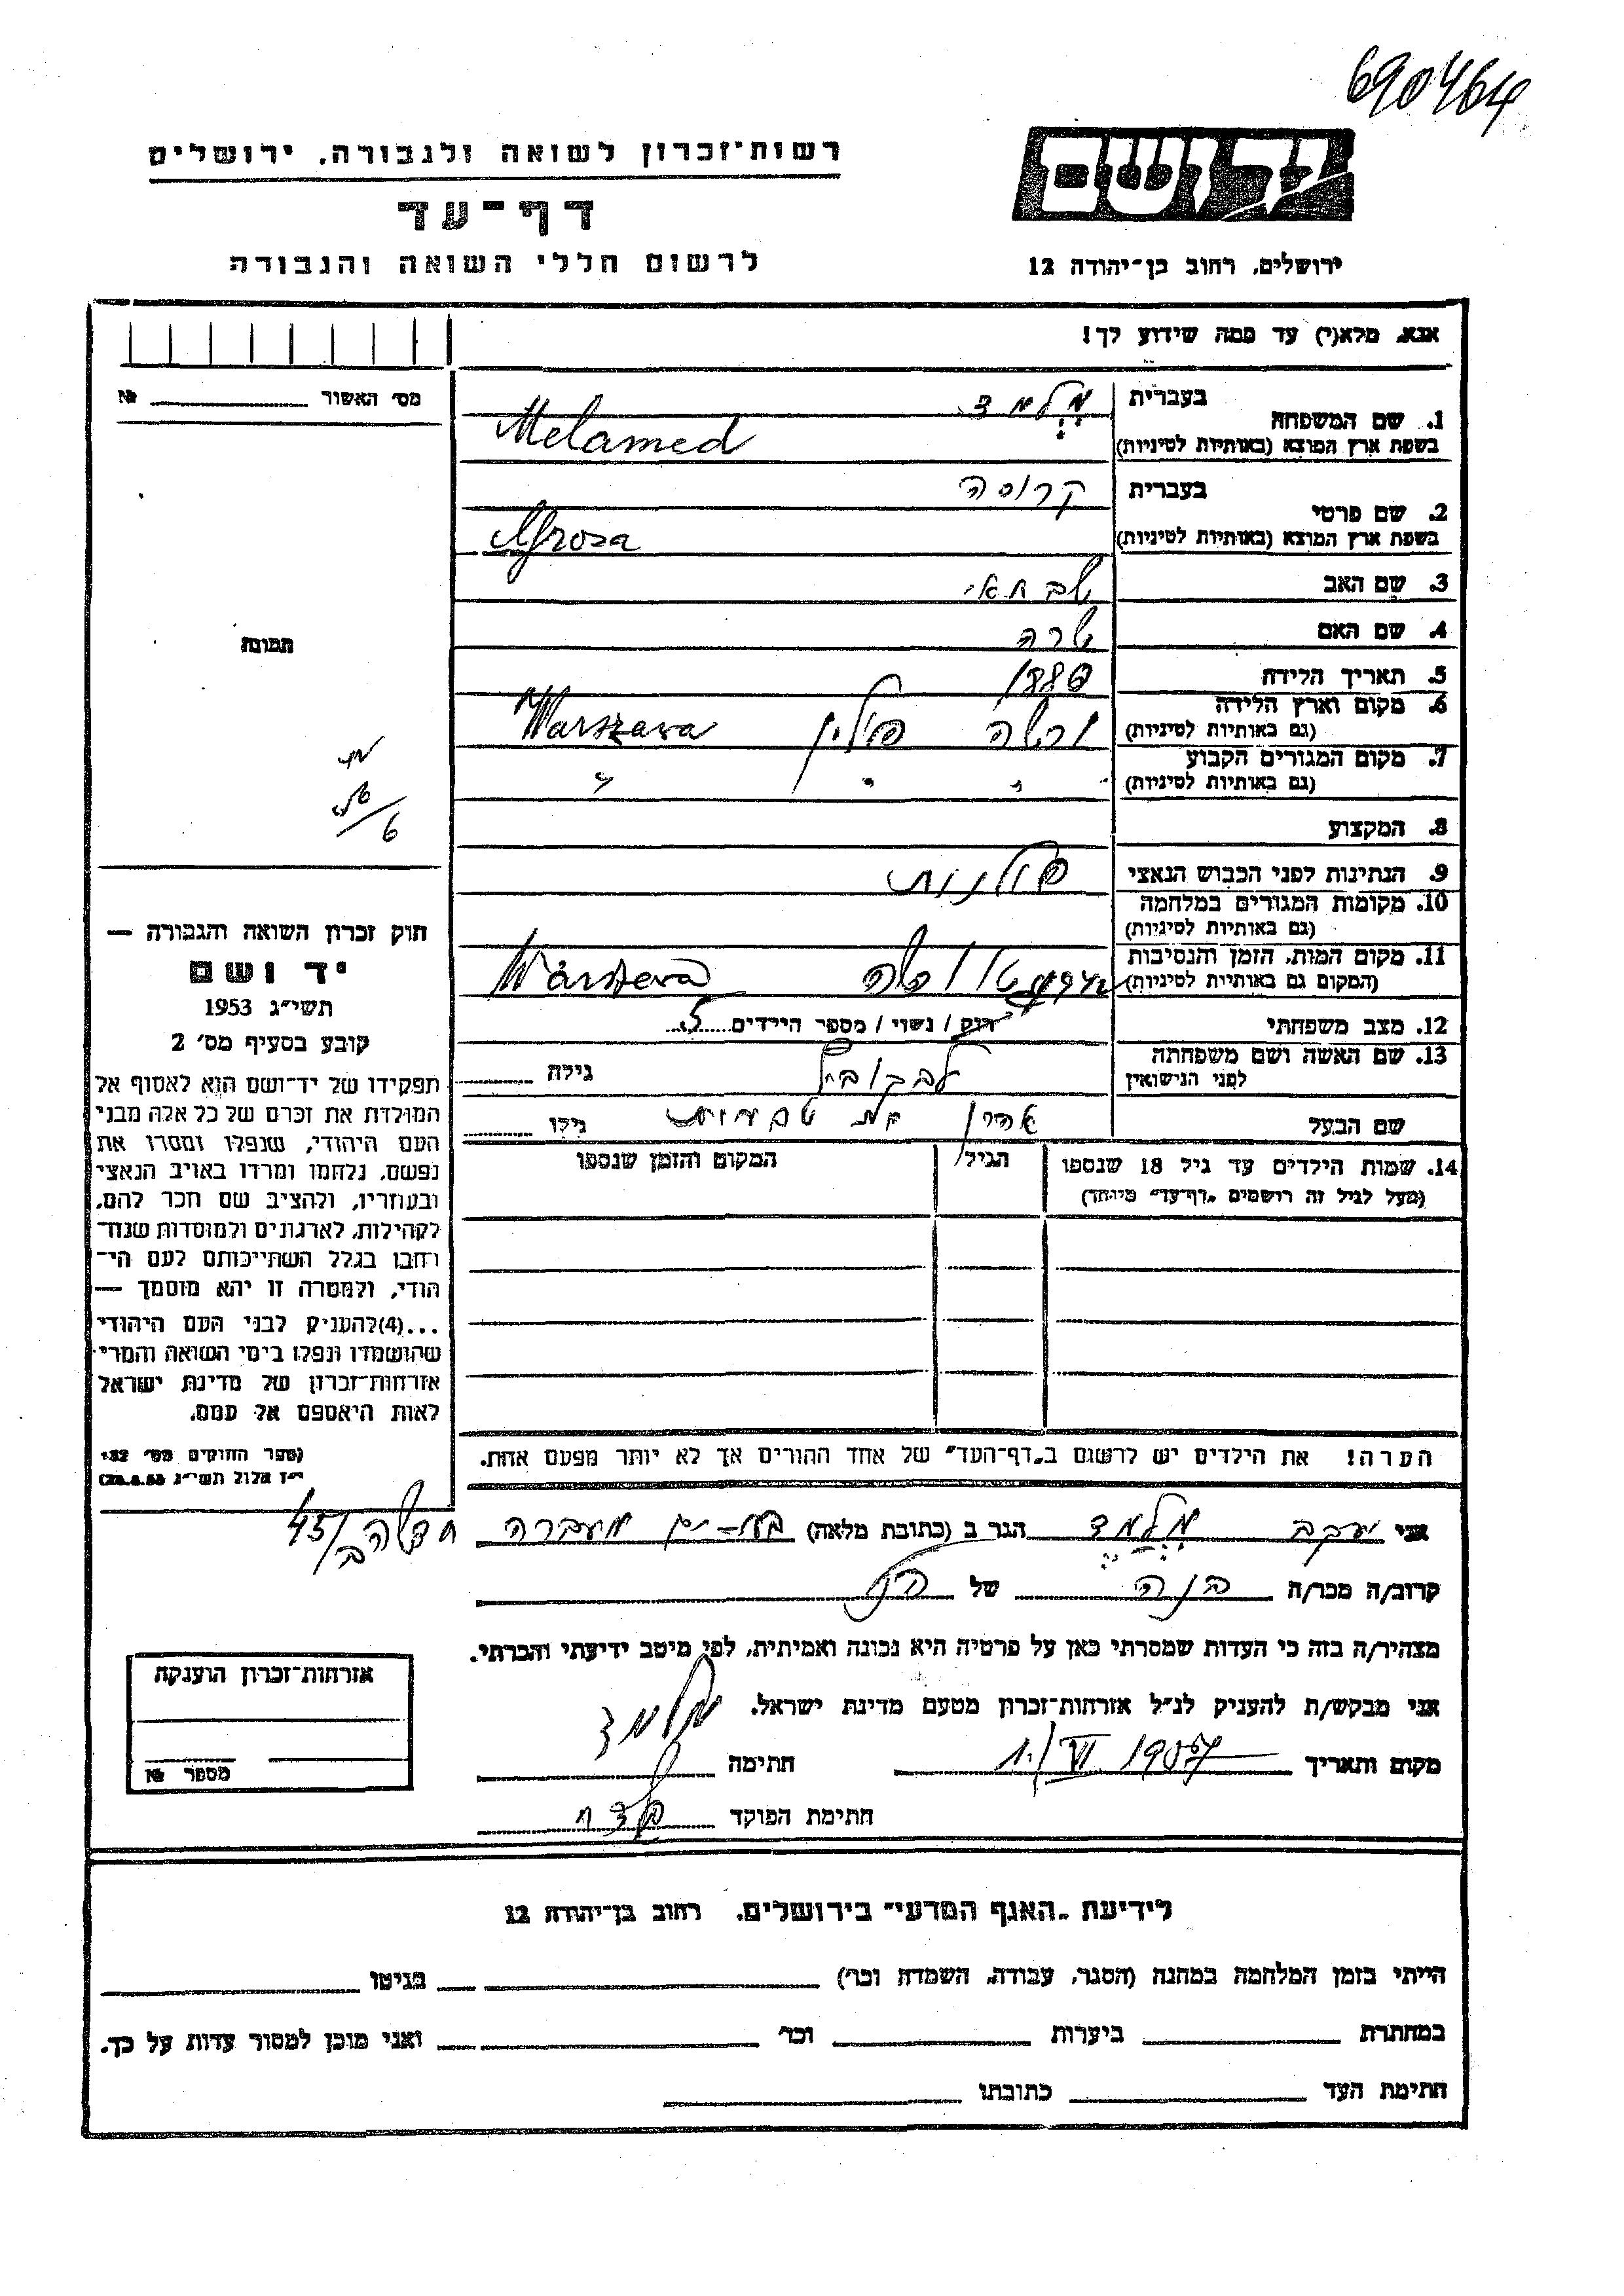 690464
יד ושם
רשות־זכרון לשואה ולגבורה, ירושלים
דף־עד
לרשום חללי השואה והגבורה
ירושלים, רחוב בן־יהודה 12
אנא, מלא(י) עד כמה שידוע לך!
מס׳ האשור № 
1. שם המשפחה בעברית מלמד
בשפת ארץ המוצא (באותיות לטיניות) Melamed
2. שם פרטי בעברית קרוסה
בשפת ארץ המוצא (באותיות לטיניות)
3. שם האב שבתאי
4. שם האם שרה
תמונה
5. תאריך הלידה
6. מקום וארץ הלידה (גם באותיות לטיניות) ורשה פולין Warszawa
7. מקום המגורים הקבוע (גם באותיות לטיניות) " " " "
8. המקצוע
9. הנתינות לפני הכבוש הנאצי פולנית
10. מקומות המגורים במלחמה (גם באותיות לטיניות)
11. מקום המות, הזמן והנסיבות (המקום גם באותיות לטיניות) ורשה Warszawa
12. מצב משפחתי רוק / נשוי / מספר הילדים 5
13. שם האשה ושם משפחתה לפני הנישואין גילה
שם הבעל אהרן גילו
14. שמות הילדים עד גיל 18 שנספו הגיל המקום והזמן שנספו
(מעל לגיל זה רושמים „דף־עד״ מיוחד)
חוק זכרון השואה והגבורה —
יד ושם
תשי״ג 1953
קובע בסעיף מס׳ 2
תפקידו של יד־ושם הוא לאסוף אל
המולדת את זכרם של כל אלה מבני
העם היהודי, שנפלו ומסרו את
נפשם, נלחמו ומרדו באויב הנאצי
ובעוזריו, ולהציב שם וזכר להם,
לקהילות, לארגונים ולמוסדות שנח־
רבו בגלל השתייכותם לעם הי־
הודי, ולמטרה זו יהא מוסמך —
...(4)להעניק לבני העם היהודי
שהושמדו ונפלו בימי השואה והמרי
אזרחות־זכרון של מדינת ישראל
לאות היאספם אל עמם.
(ספר החוקים מס׳ 132,
י״ז אלול תשי״ג 28.8.53)
הערה! את הילדים יש לרשום ב„דף־העד״ של אחד ההורים אך לא יותר מפעם אחת.
אני יעקב מלמד הגר ב (כתובת מלאה) בת-ים מעברה חדשה ב/45
קרוב/ה מכר/ה בנה של
מצהיר/ה בזה כי העדות שמסרתי כאן על פרטיה היא נכונה ואמיתית, לפי מיטב ידיעתי והכרתי.
אני מבקש/ת להעניק לנ״ל אזרחות־זכרון מטעם מדינת ישראל.
מקום ותאריך 1./VI 1957 חתימה מלמד
חתימת הפוקד
אזרחות־זכרון הוענקה
מספר №
לידיעת „האגף המדעי״ בירושלים, רחוב בן־יהודה 12
הייתי בזמן המלחמה במחנה (הסגר, עבודה, השמדה וכו׳) בגיטו
במחתרת ביערות וכו׳ ואני מוכן למסור עדות על כך.
חתימת העד כתובתו